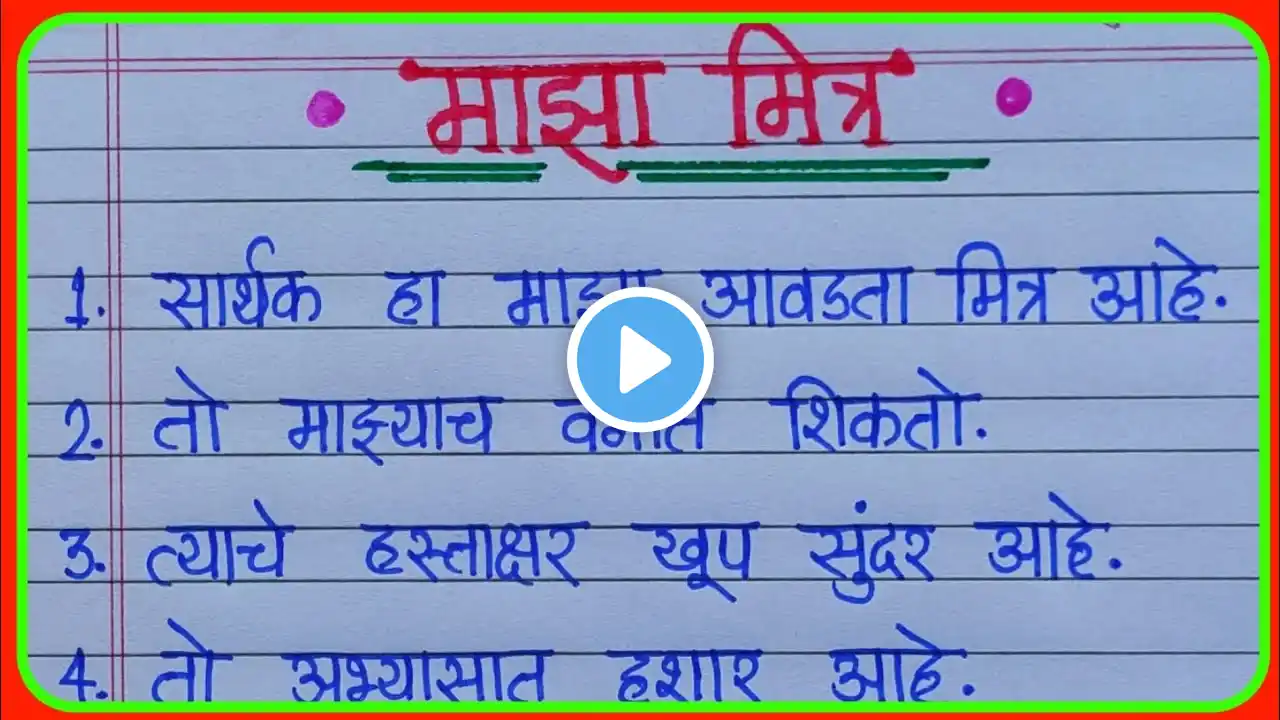 माझा मित्र
1. सार्थक हा माझा आवडता मित्र आहे.
2. तो माझ्याच वर्गात शिकतो.
3. त्याचे हस्ताक्षर खूप सुंदर आहे.
4. तो अभ्यासात हुशार आहे.